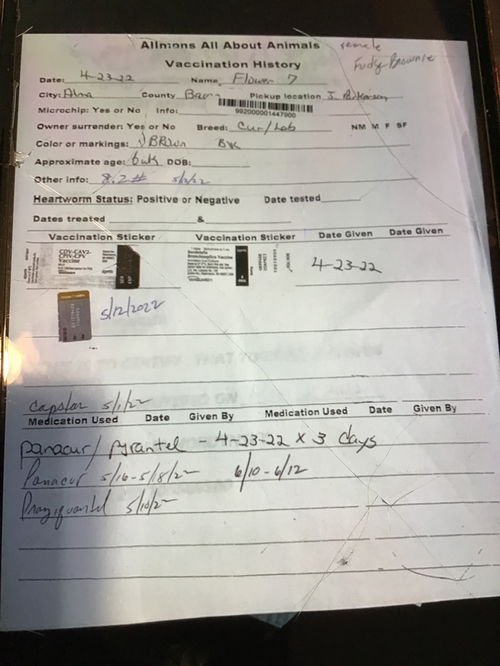 Allmons All About Animals
female
Vaccination History
Fudge Brownie
Date: 4-23-22 Name Flower 7
City: Alma County Bacon Pickup location J. Parkerson
Microchip: Yes or No Info: 992000001447900
Owner surrender: Yes or No Breed: Cur/Lab NM M F SF
Color or markings: Brown Blk
Approximate age: 6wk DOB:
Other info: 8.2# 5/2/22
Heartworm Status: Positive or Negative Date tested
Dates treated &
Vaccination Sticker Vaccination Sticker Date Given Date Given
CDV-CAV2-
CPIV-CPV
Vaccine
Bordetella
Bronchiseptica Vaccine
4-23-22
5/12/2022
Capstar 5/1/22
Medication Used Date Given By Medication Used Date Given By
panacur/pyrantel - 4-23-22 x 3 days
Panacur 5/16-5/18/22 6/10-6/12
Praziquantel 5/10/22